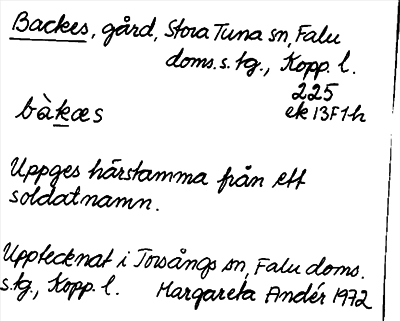 Backes, gård, Stora Tuna sn, Falu
doms. s. tg., Kopp. l.
225
bàkæs ek 13F1h
Uppges härstamma från ett
soldatnamn.
Upptecknat i Torsångs sn, Falu doms.
s. tg., Kopp. l. Margareta Andér 1972